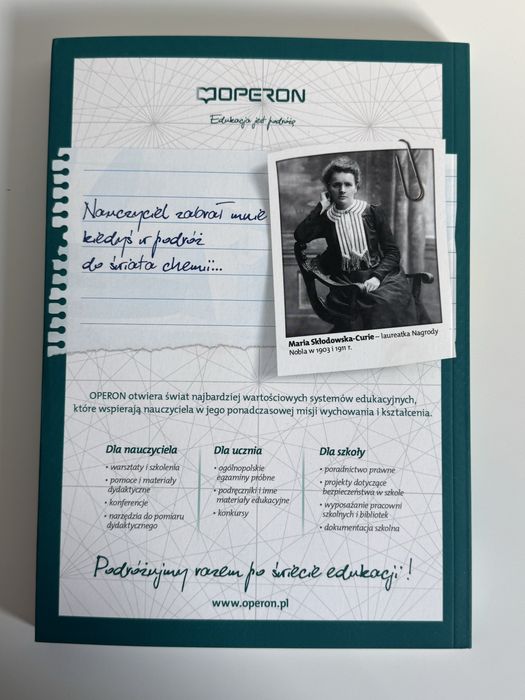 OPERON
Edukacja jest podróżą
Nauczyciel zabrał mnie
kiedyś w podróż
do świata chemii...
Maria Skłodowska-Curie – laureatka Nagrody
Nobla w 1903 i 1911 r.
OPERON otwiera świat najbardziej wartościowych systemów edukacyjnych,
które wspierają nauczyciela w jego ponadczasowej misji wychowania i kształcenia.
Dla nauczyciela
• warsztaty i szkolenia
• pomoce i materiały
dydaktyczne
• konferencje
• narzędzia do pomiaru
dydaktycznego
Dla ucznia
• ogólnopolskie
egzaminy próbne
• podręczniki i inne
materiały edukacyjne
• konkursy
Dla szkoły
• poradnictwo prawne
• projekty dotyczące
bezpieczeństwa w szkole
• wyposażanie pracowni
szkolnych i bibliotek
• dokumentacja szkolna
Podróżujmy razem po świecie edukacji!
www.operon.pl